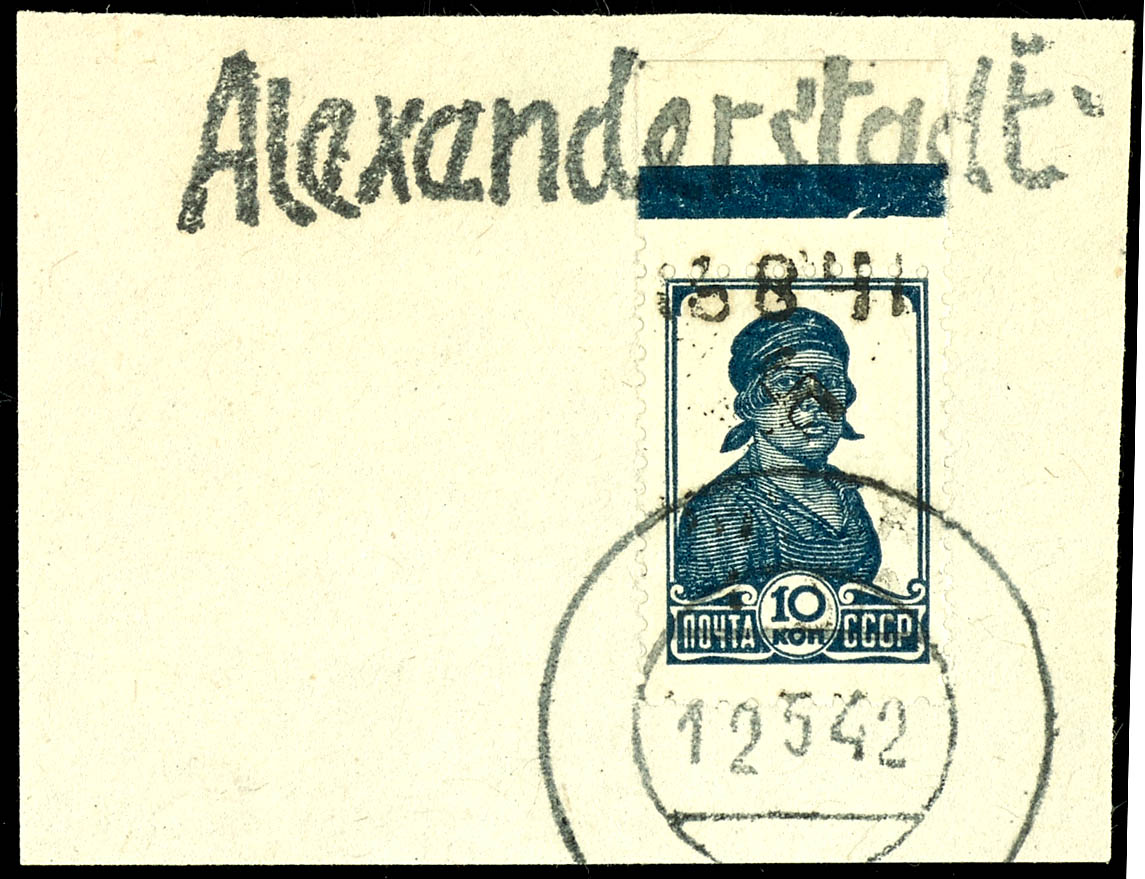 Alexanderstadt
8 41
10
КОП
ПОЧТА СССР
12 5 42